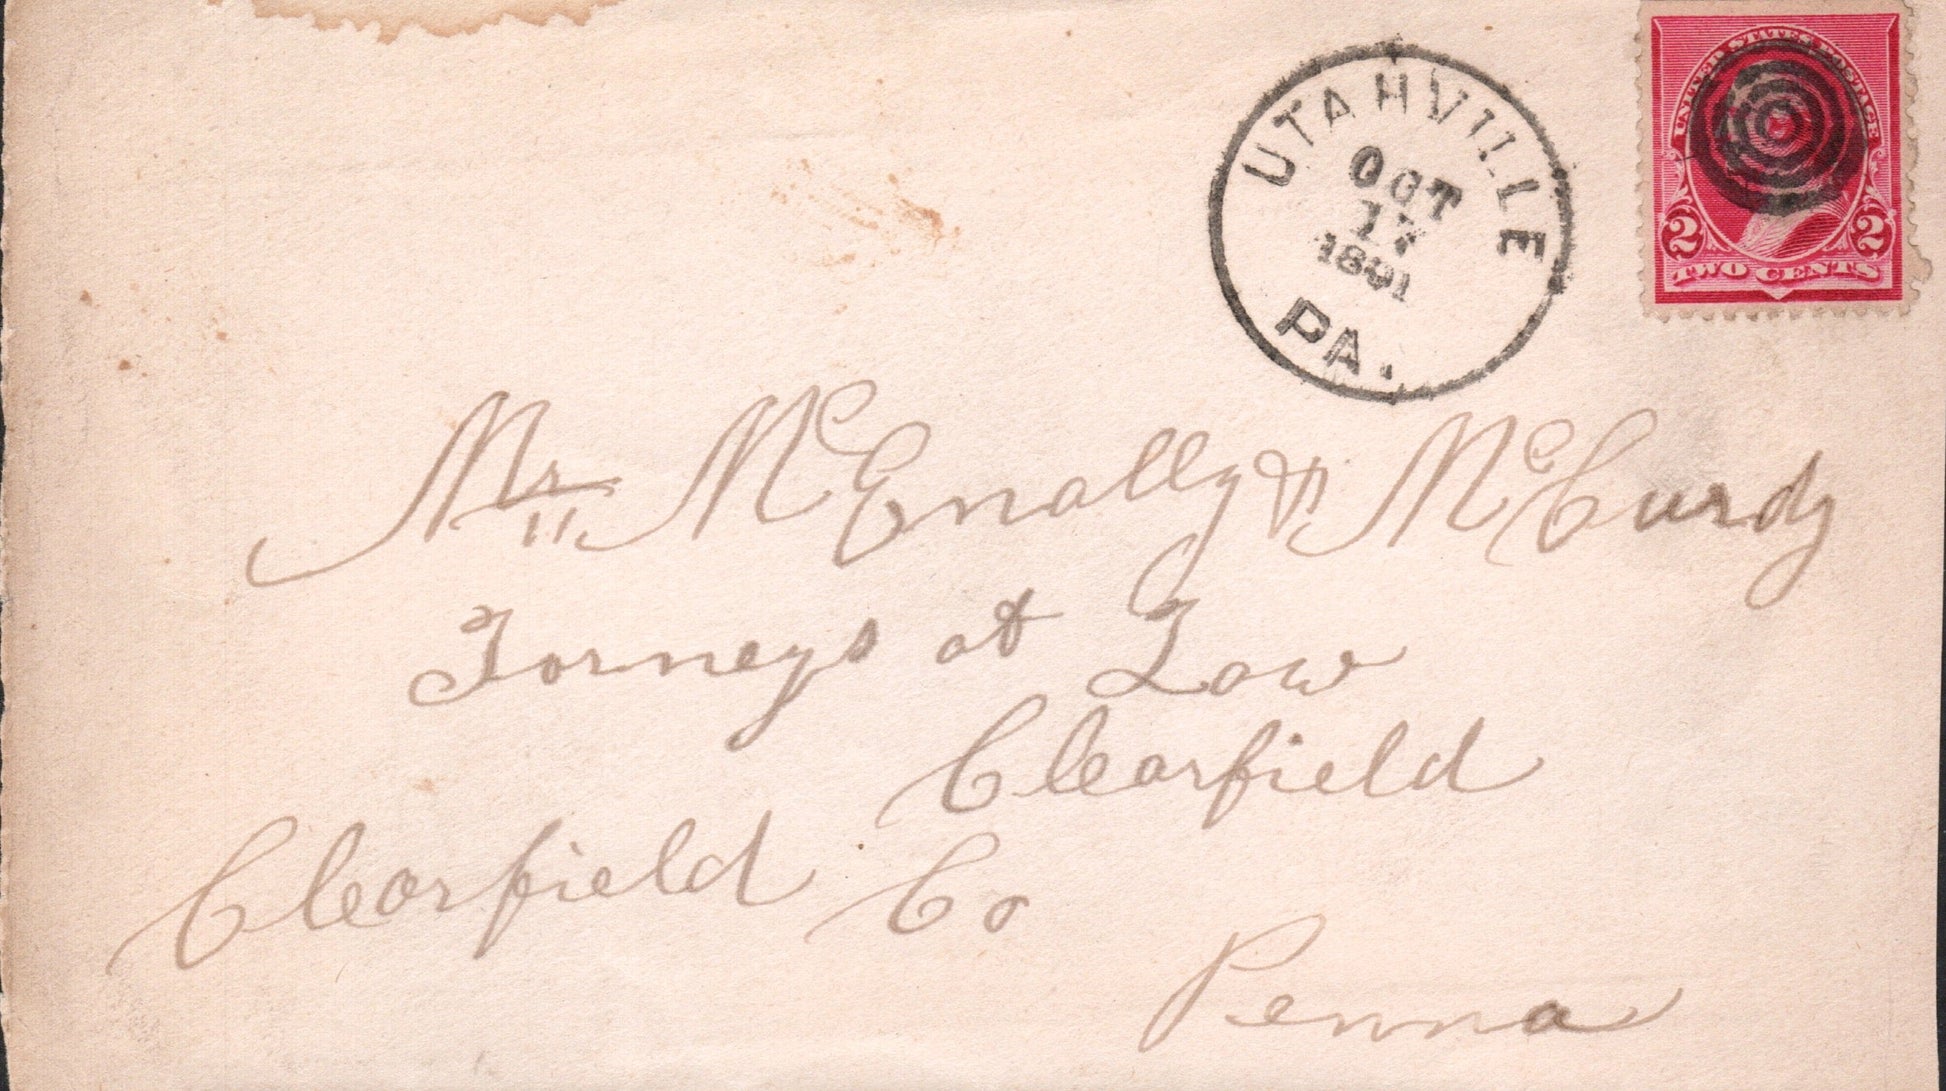 UNITED STATES POSTAGE
2 2
TWO CENTS
UTAHVILLE
OCT
1891
PA.
Mr. McEnally & McCurdy
Torneys at Law
Clearfield
Clearfield Co
Penna